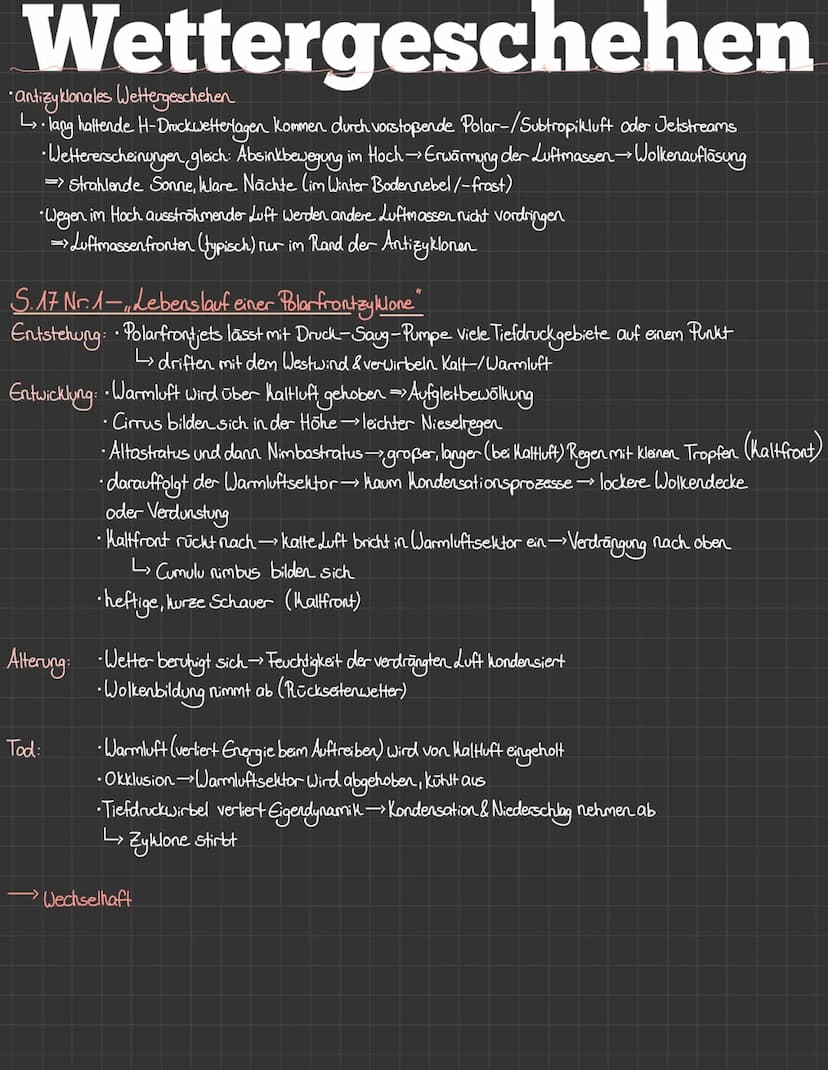 Wettergeschehen
· antizyklonales Wettergeschehen
↳ · lang haltende H-Druckwetterlagen kommen durch vorstoßende Polar-/Subtropikluft oder Jetstreams
· Wettererscheinungen gleich: Absinkbewegung im Hoch → Erwärmung der Luftmassen → Wolkenauflösung
=> strahlende Sonne, klare Nächte (im Winter Bodennebel/-frost)
· Wegen im Hoch ausströhmender Luft werden andere Luftmassen nicht vordringen
=> Luftmassenfronten (typisch) nur im Rand der Antizyklonen
S.17 Nr.1 – „Lebenslauf einer Polarfrontzyklone"
Entstehung: · Polarfrontjets lässt mit Druck-Saug-Pumpe viele Tiefdruckgebiete auf einem Punkt
↳ driften mit dem Westwind & verwirbeln Kalt-/Warmluft
Entwicklung: · Warmluft wird über Kaltluft gehoben => Aufgleitbewölkung
· Cirrus bilden sich in der Höhe → leichter Nieselregen
· Altostratus und dann Nimbostratus → großer, langer (bei Kaltluft) Regen mit kleinen Tropfen (Kaltfront)
· darauffolgt der Warmluftsektor → kaum Kondensationsprozesse → lockere Wolkendecke
oder Verdunstung
· Kaltfront rückt nach → kalte Luft bricht in Warmluftsektor ein → Verdrängung nach oben
↳ Cumulu nimbus bilden sich
· heftige, kurze Schauer (Kaltfront)
Alterung: · Wetter beruhigt sich → Feuchtigkeit der verdrängten Luft kondensiert
· Wolkenbildung nimmt ab (Rückseitenwetter)
Tod: · Warmluft (verliert Energie beim Auftreiben) wird von Kaltluft eingeholt
· Okklusion → Warmluftsektor wird abgehoben, kühlt aus
· Tiefdruckwirbel verliert Eigendynamik → Kondensation & Niederschlag nehmen ab
↳ Zyklone stirbt
→ Wechselhaft